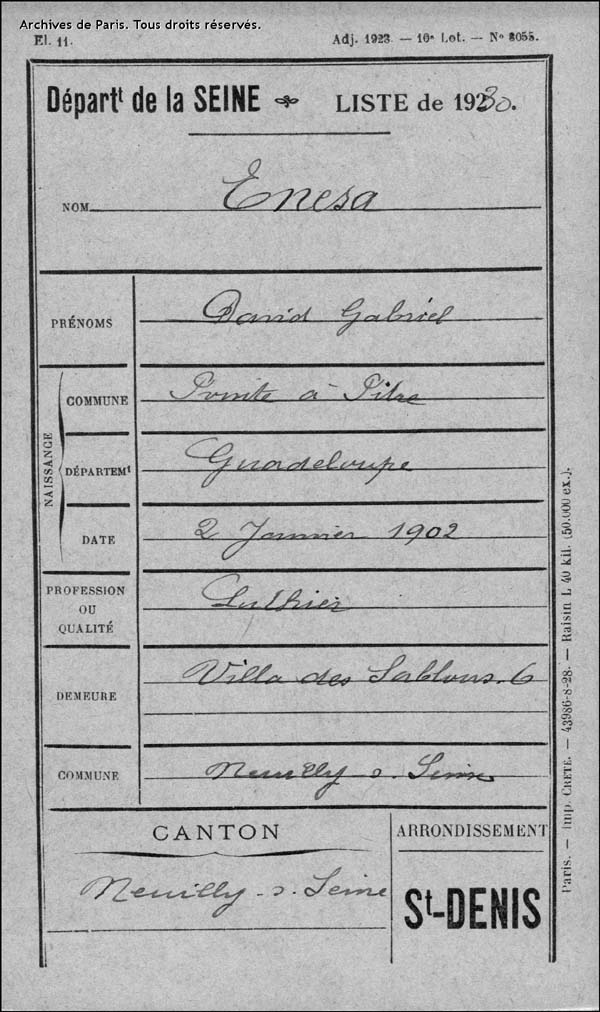 Archives de Paris. Tous droits réservés.
El. 11.
Adj. 1923. — 16e Lot. — No 8055.
Départt de la SEINE
LISTE de 1930.
NOM
Enesa
PRÉNOMS
David Gabriel
NAISSANCE
COMMUNE
Pointe à Pitre
DÉPARTEMt
Guadeloupe
DATE
2 Janvier 1902
PROFESSION
OU
QUALITÉ
Luthier
DEMEURE
Villa des Sablons. 6
COMMUNE
Neuilly s. Seine
CANTON
Neuilly s. Seine
ARRONDISSEMENT
St-DENIS
Paris. — Imp. CRÉTÉ. — 43986-8-28. — Raisin L 40 kil. (50.000 ex.).